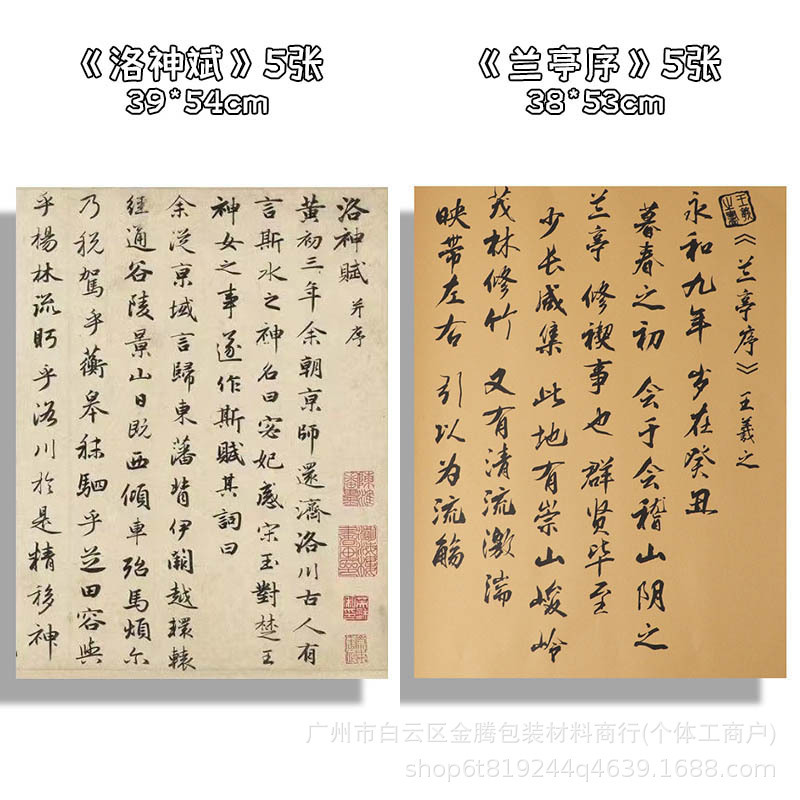 《洛神斌》5张
39*54cm
《兰亭序》5张
38*53cm
洛神賦 并序
黄初三年余朝京師還濟洛川古人有
言斯水之神名曰宓妃感宋玉對楚王
神女之事遂作斯賦其詞曰
余從京域言歸東藩背伊闕越轘轅
經通谷陵景山日既西傾車殆馬煩尔
乃税駕乎蘅皋秣駟乎芝田容與
乎楊林流眄乎洛川於是精移神
《兰亭序》王羲之
永和九年 岁在癸丑
暮春之初 会于会稽山阴之
兰亭 修禊事也 群贤毕至
少长咸集 此地有崇山峻岭
茂林修竹 又有清流激湍
映带左右 引以为流觞
广州市白云区金腾包装材料商行(个体工商户)
shop6t819244q4639.1688.com